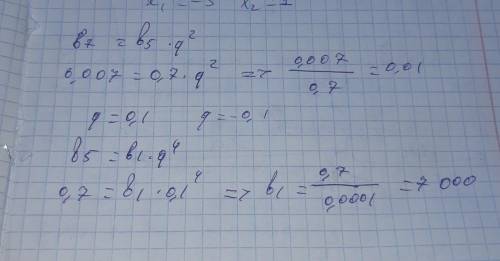 x₁ = -5 x₂ = 7
в7 = в5 · q²
0,007 = 0,7 · q² => 0,007 / 0,7 = 0,01
q = 0,1 q = -0,1
в5 = в1 · q⁴
0,7 = в1 · 0,1⁴ => в1 = 0,7 / 0,0001 = 7 000